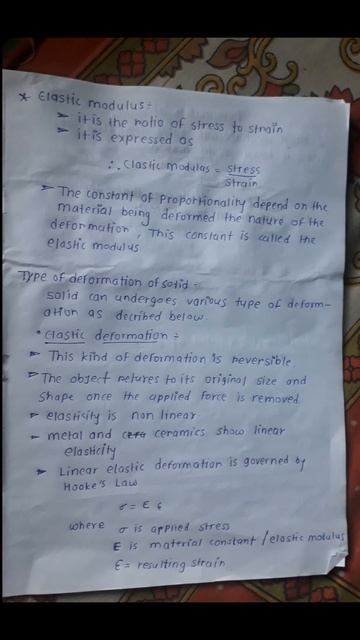 * Elastic modulus :-
➤ it is the ratio of stress to strain
➤ it is expressed as
∴ Elastic modulas = stress / strain
➤ The constant of proportionality depend on the
material being deformed the nature of the
deformation, This constant is called the
elastic modulus
Type of deformation of solid :-
solid can undergoes various type of deform-
ation as decribed below.
• Elastic deformation :-
➤ This kind of deformation is reversible.
➤ The object retures to its original size and
shape once the applied force is removed.
➤ elasticity is non linear.
➤ metal and ceramics show linear
elasticity
➤ Linear elastic deformation is governed by
Hooke's Law
σ = E ϵ
where σ is applied stress
E is material constant / elastic modulus
Ɛ = resulting strain